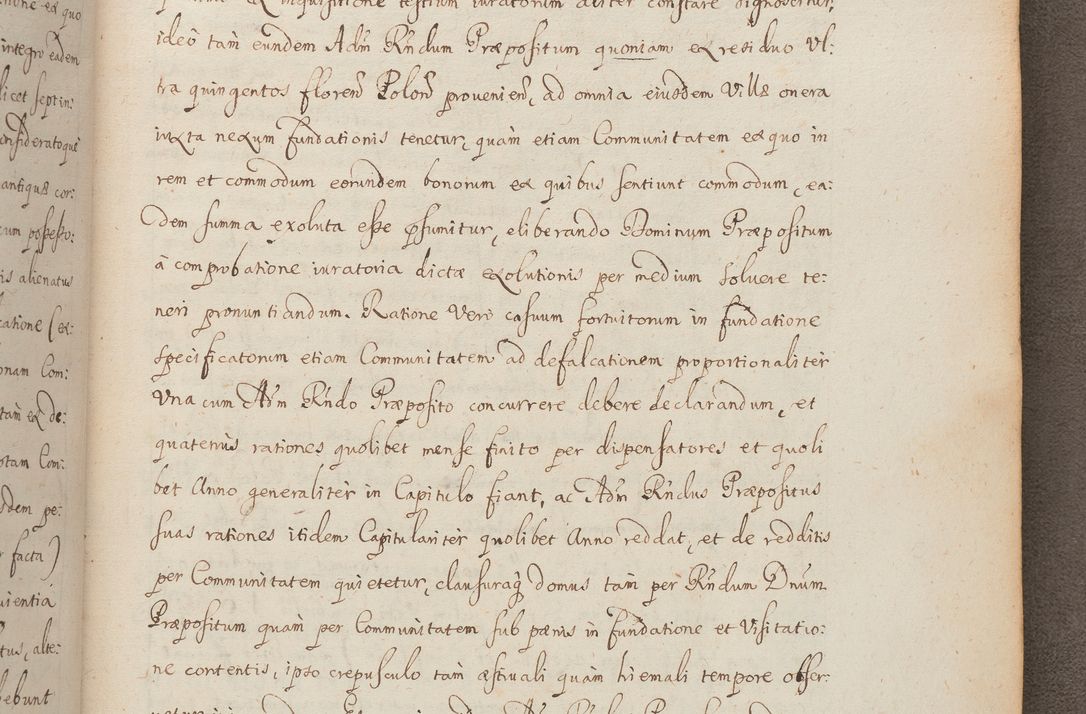 et inquisitione testium iuratorum aliter constare dignoscitur,
ideò tam eundem Adm̃ Rñdum Præpositum quoniam ex residuo Vl:
tra quingentos floreñ Poloñ provenieñ, ad omnia eiusdem Villæ onera
iuxta nexum fundationis tenetur, quàm etiam Communitatem ex quo in
rem et commodum eorundem bonorum ex quibus sentiunt commodum, ea:
dem summa exoluta esse pr̃sumitur, eliberando Dominum Præpositum
à comprobatione iuratoria dictæ exolutionis per medium soluere te:
neri pronuntiandum. Ratione Verò casuum fortuitorum in fundatione
specificatorum etiam Communitatem ad defalcationem proportionaliter
Vna cum Adm̃ Rñdo Præposito concurrere debere declarandum, et
quatenus rationes quolibet mense finito per dispensatores et quoli
bet Anno generaliter in Capitulo fiant, ac Adm̃ Rñdus Præpositus
suas rationes itidem Capitulariter quolibet Anno reddat, et de redditis
per Communitatem quietetur, clausuraq́ domus tàm per Rñdum Dnum
Præpositum quàm per Communitatem sub pænis in fundatione et Visitatio:
ne contentis, ipso crepusculo tàm æstiuali quàm hiemali tempore obser:
ex quo
integro eadem
licet septin:
consideratoque
antiquæ cor:
cum possesso:
is alienatus
catione (ex:
onam Com:
tam ex de:
otam Com:
sdem pe:
facta)
uientia
tus, alte:
debebunt